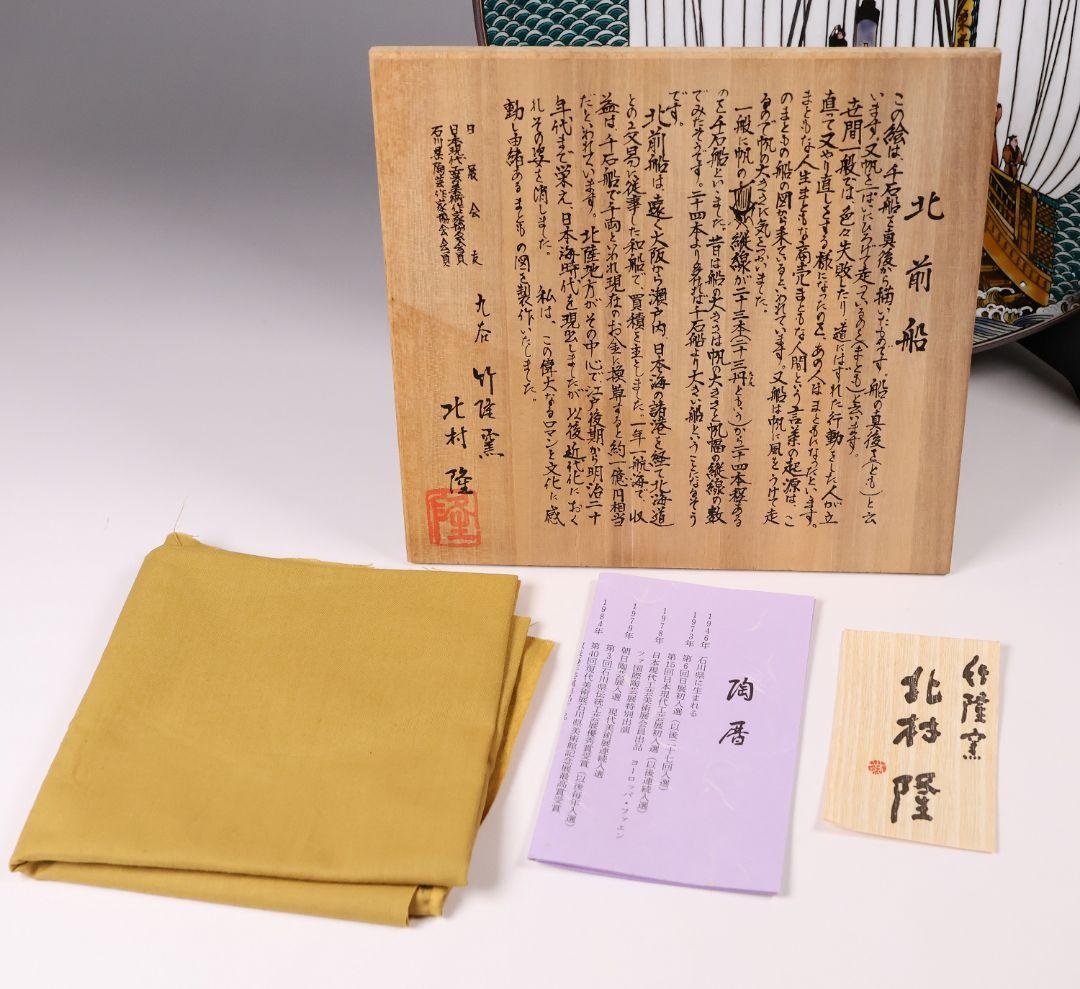 北前船
この絵は、千石船を真後から描いたものです。船の真後を(とも)と云
います。又帆を一ぱいにひろげて走っているのを(まとも)と云います。
世間一般では、色々失敗したり、道にはずれた行動をした人が立
直って又やり直しをする様になったのを、あの人はまともになったといます。
まともな人生まともな商売まともな人間という言葉の起源は、こ
のまともの船の図から来ているといわれています。又船は帆に風をうけて走
るので帆の大きさに気をつかいました。
一般に帆の縦線が二十三本(二十三丹ともいう)から二十四本程ある
のを千石船といいました。昔は船の大きさは帆の大きさと帆幅の縦線の数
でみたそうです。二十四本より多ければ千石船より大きい船ということになるそう
です。
北前船は、遠く大阪から瀬戸内、日本海の諸港を経て北海道
との交易に従事した和船で、買積を主としました。一年一航海で、収
益は、千石船で千両といわれ現在のお金に換算すると約一億円相当
だといわれています。北陸地方がその中心で江戸後期から明治二十
年代まで栄え、日本海時代を現出しましたが以後近代化におく
れその姿を消しました。 私は、この偉大なるロマンと文化に感
動し由緒あるまともの図を製作いたしました。
日展会友
日本現代工芸美術作家協会会員
石川県陶芸作家協会会員
九谷 竹隆窯
北村 隆
隆
陶暦
1946年 石川県に生まれる
1973年 第6回日展初入選(以後二十七回入選)
第15回日本現代工芸展初入選(以後連続入選)
1978年 日本現代工芸美術展会員出品 ヨーロッパ・ファエン
ツァ国際陶芸展特別出演
1979年 朝日陶芸展入選 現代美術展連続入選
第3回石川県伝統工芸展優秀賞受賞(以後毎年入選)
1984年 第40回現代美術展石川県美術館記念展最高賞受賞
竹隆窯
北村 隆